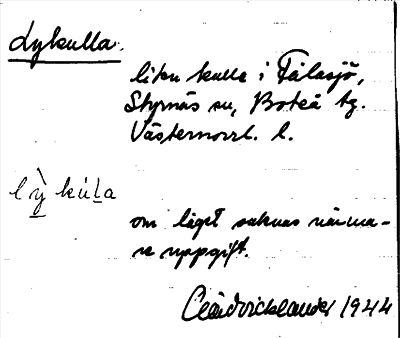 Lykulla.
liten kulle i Fälasjö,
Styrnäs sn, Boteå tg.
Västernorrl. l.
lỳ kùla
om läget saknas närma-
re uppgift.
1944